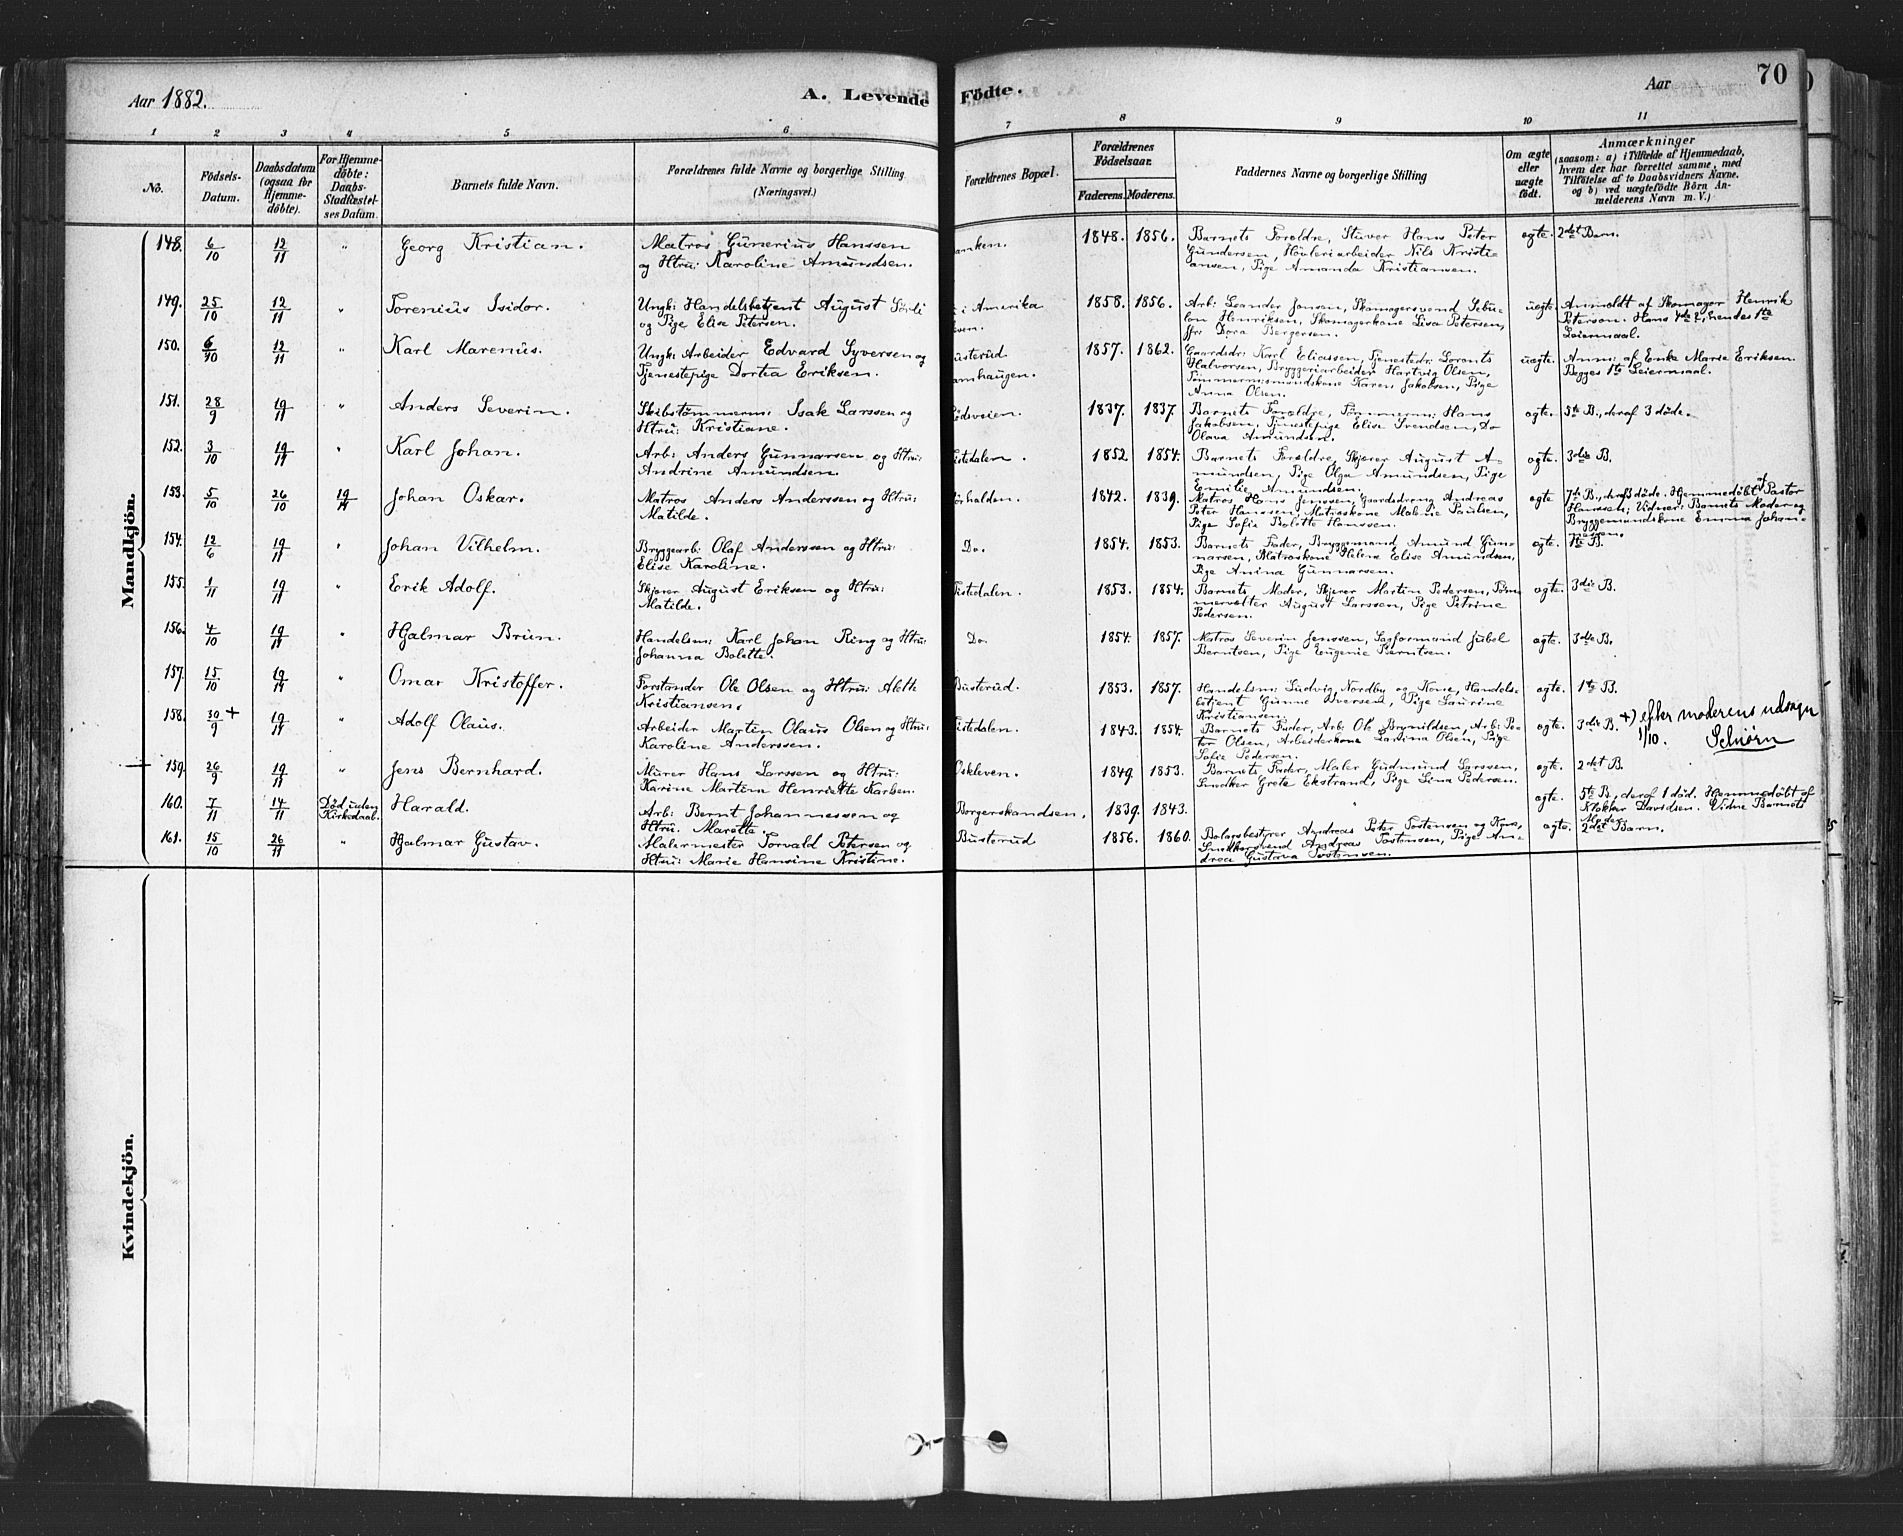 Aar 1882.
A. Levende Födte.
Aar
70
1 2 3 4 5 6 7 8 9 10 11
No.
Födsels-Datum.
Daabsdatum (ogsaa for Hjemmedöbte).
For Hjemmedöbte: Daabs-Stadfæstelses Datum.
Barnets fulde Navn.
Forældrenes fulde Navne og borgerlige Stilling (Næringsvei.)
Forældrenes Bopæl.
Forældrenes Födselsaar.
Faderens. Moderens.
Faddernes Navne og borgerlige Stilling
Om ægte eller uægte födt.
Anmærkninger
(saasom: a) i Tilfælde af Hjemmedaab, hvem der har forrettet samme, med Tilföielse af to Daabsvidners Navne, og b) ved uægtefödte Börn Anmelderens Navn m. V.)
Mandkjön.
148. 6/10 12/11 " Georg Kristian. Matros Gunerius Hanssen og Htru: Karoline Amundsen. anken. 1848. 1856. Barnets Forældre, Stuver Hans Peter Gundersen, Hövleriarbeider Nils Kristiansen, Pige Amanda Kristiansen. ægte. 2det Barn.
149. 25/10 12/11 " Torenius Isidor. Ungk: Handelsbetjent August Sörli og Pige Elise Petersen. i Amerika 1858. 1856. Arb: Leander Jonsen, Skomagersvend Sebulon Henriksen, Skomagerkone Lisa Petersen, Dora Bergersen. uægte. Anmeldt af Skomager Henrik Peterson. Hans 2, hendes 1ste Leiermaal.
150. 6/10 12/11 " Karl Marenus. Ungk: Arbeider Edvard Syversen og Tjenestepige Dortea Eriksen. usterud. amhaugen. 1857. 1862. Gaardsdr: Karl Eliassen, Tjenestedr. Lorents Halvorsen, Bryggeriarbeider Hartvig Olsen, Tömmermandskone Karen Jakobsen, Pige Anna Olsen. uægte. Anm: af Enke Marie Eriksen. Begges 1ste Leiermaal.
151. 28/9 19/11 " Anders Severin. Skibstömmerm: Isak Larssen og Htru: Kristiane. ödsveien. 1837. 1837. Barnets Forældre, Tömmerm: Hans Jakobsen, Tjenestepige Elise Svendsen, Do Olava Amundsen. ægte. 5te B., deraf 3 döde.
152. 3/10 19/11 " Karl Johan. Arb: Anders Gunnarsen og Htru: Andrine Amundsen. istedalen. 1852 1854. Barnets Forældre, Skjærer August Amundsen, Pige Olga Amundsen, Pige Emilie Amundsen. ægte. 3die B.
153. 5/10 26/10 19/11 Johan Oskar. Matros Anders Anderssen og Htru: Matilde. örhalden. 1842. 1839. Matros Hans Jenssen, Gaardsdreng Andreas Peter Hanssen, Matroskone Malenie Paulsen, Pige Sofie Bolette Hanssen. ægte 7de B., deraf 3 döde. Hjemmedöbt af Pastor Hanssen; Vidner: Barnets Moder og Bryggemandskone Emma Johannessen.
154. 12/6 19/11 " Johan Vilhelm. Bryggearb: Olaf Anderssen og Htru: Elise Karoline. Do. 1854. 1853. Barnets Fader, Bryggemand Amund Gunnarsen, Matroskone Helene Elise Amundsen, Pige Anina Gunnarsen. ægte. 1te B.
155. 1/11 19/11 " Erik Adolf. Skjærer August Eriksen og Htru: Matilde. Tistedalen. 1853. 1854. Barnets Moder, Skjærer Martin Pedersen, Tömmervælter August Larssen, Pige Petrine Pedersen. ægte. 3die B.
156. 4/10 19/11 " Hjalmar Brun. Handelsm: Karl Johan Ring og Htru: Johanna Bolette. Do. 1854. 1857. Matros Severin Jenssen, Sagformand Jubel Berntsen, Pige Eugenie Berntsen. ægte. 3die B.
157. 15/10 19/11 " Omar Kristoffer. Forstander Ole Olsen og Htru: Alette Kristiansen. Busterud. 1853. 1857. Handelsm: Ludvig Nordby og Kone, Handelsbetjent Gunne Iversen, Pige Laurine Kristiansen. ægte. 1te B.
158. 30/9 + 19/11 " Adolf Olaus. Arbeider Martin Olaus Olsen og Htru: Karoline Anderssen. istedalen. 1843. 1854. Barnets Fader, Arb: Ole Brynildsen, Arb: Peter Olsen, Arbeiderkone Larina Olsen, Pige Sofie Pedersen. ægte. 3die B. +) efter moderens udsagn 1/10. Schiörn
159. 26/9 19/11 " Jens Bernhard. Murer Hans Larssen og Htru: Karine Martine Henriette Karlsen. Oskleven. 1849. 1853. Barnets Fader, Maler Gudmund Larssen, Snedker Grete Ekstrand, Pige Lina Pedersen. ægte. 2det B.
160. 7/11 14/11 Död uden Kirkedaab. Harald. Arb: Bernt Johannessen og Htru. Marette. Borgerskandsen. 1839. 1843. " ægte. 5te B., deraf 1 död. Hjemmedöbt af Klokker Davidsen. Vidne Barnets Moder.
161. 15/10 26/11 " Hjalmar Gustav. Malermester Torvald Petersen og Htru: Marie Hansine Kristine. Busterud 1856. 1860. Bolagsbestyrer Andreas Peter Torstensen og Kone, Snedkersvend Andreas Torstensen, Pige Andrea Gustava Torstensen. ægte. 2det Barn.
Kvindekjön.